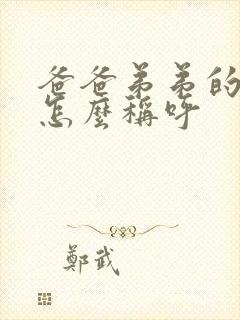 爸爸弟弟的
怎麼稱呼
鄭武